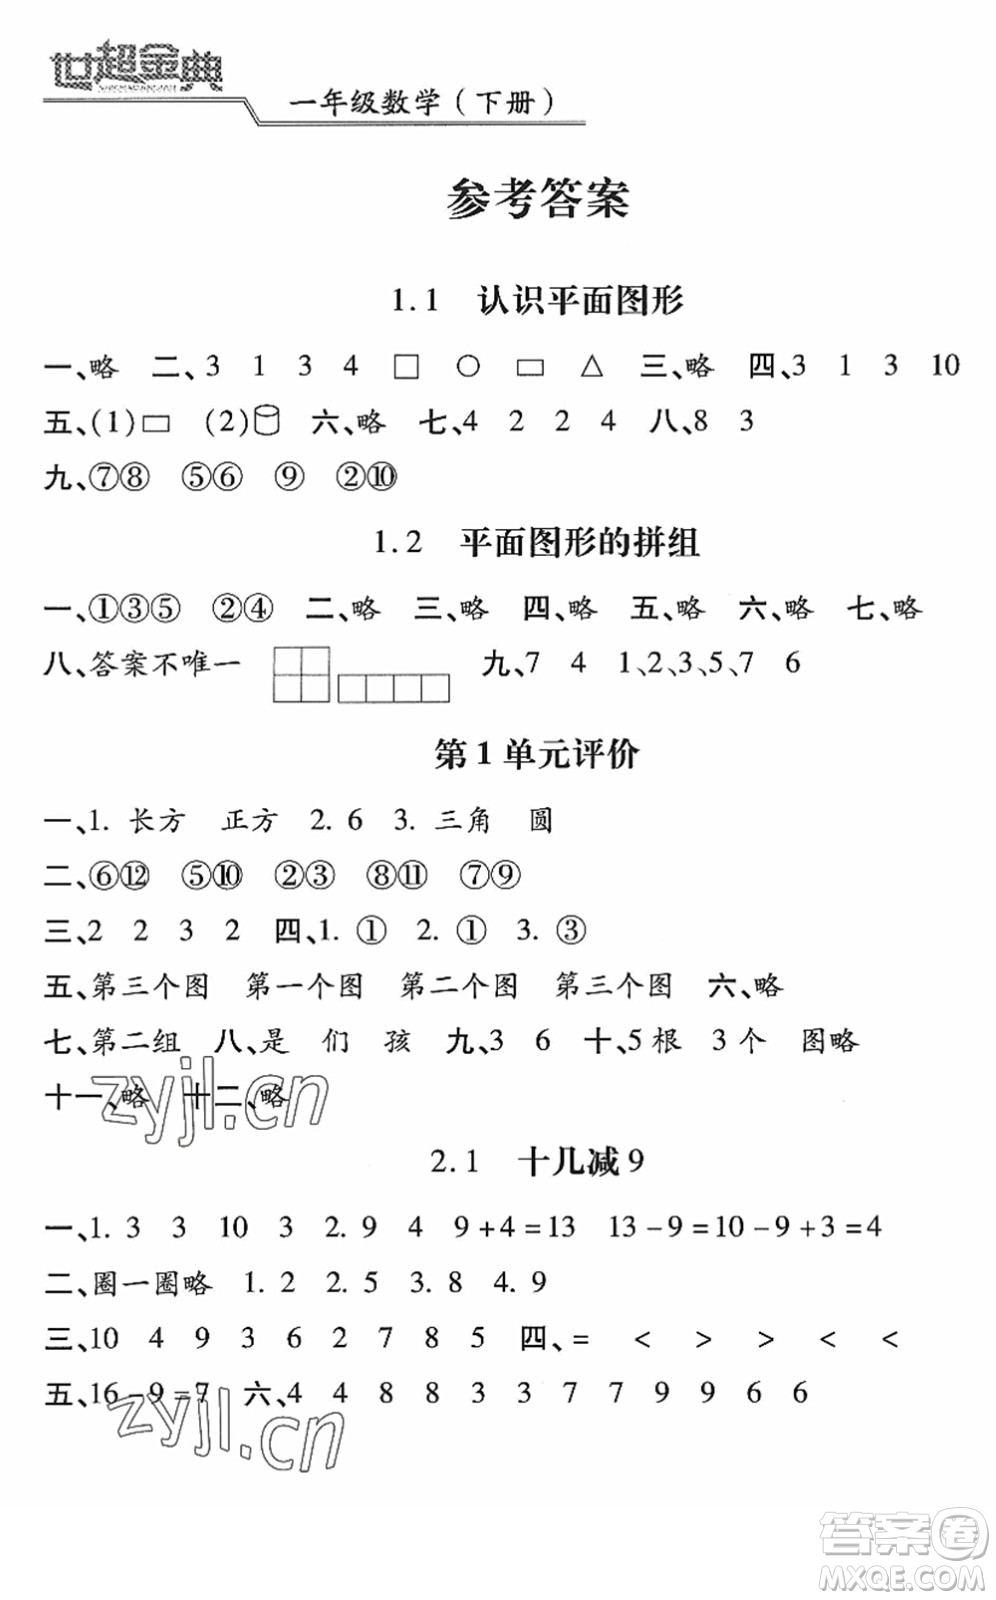 世超金典
一年级数学（下册）
参考答案
1.1 认识平面图形
一、略 二、3 1 3 4 □ ○ ▭ △ 三、略 四、3 1 3 10
五、(1)▭ (2) 六、略 七、4 2 2 4 八、8 3
九、⑦⑧ ⑤⑥ ⑨ ②⑩
1.2 平面图形的拼组
一、①③⑤ ②④ 二、略 三、略 四、略 五、略 六、略 七、略
八、答案不唯一 九、7 4 1、2、3、5、7 6
第1单元评价
一、1. 长方 正方 2. 6 3. 三角 圆
二、⑥⑫ ⑤⑩ ②③ ⑧⑪ ⑦⑨
三、2 2 3 2 四、1. ① 2. ① 3. ③
五、第三个图 第一个图 第二个图 第三个图 六、略
七、第二组 八、是 们 孩 九、3 6 十、5根 3个 图略
十一、略 十二、略
zyjl.cn
2.1 十几减9
一、1. 3 3 10 3 2. 9 4 9+4=13 13-9=10-9+3=4
二、圈一圈略 1. 2 2. 5 3. 8 4. 9
三、10 4 9 3 6 2 7 8 5 四、= < > > < <
五、16-9=7 六、4 4 8 8 3 3 7 7 9 9 6 6
zyjl.cn
答案卷
MXQE.COM